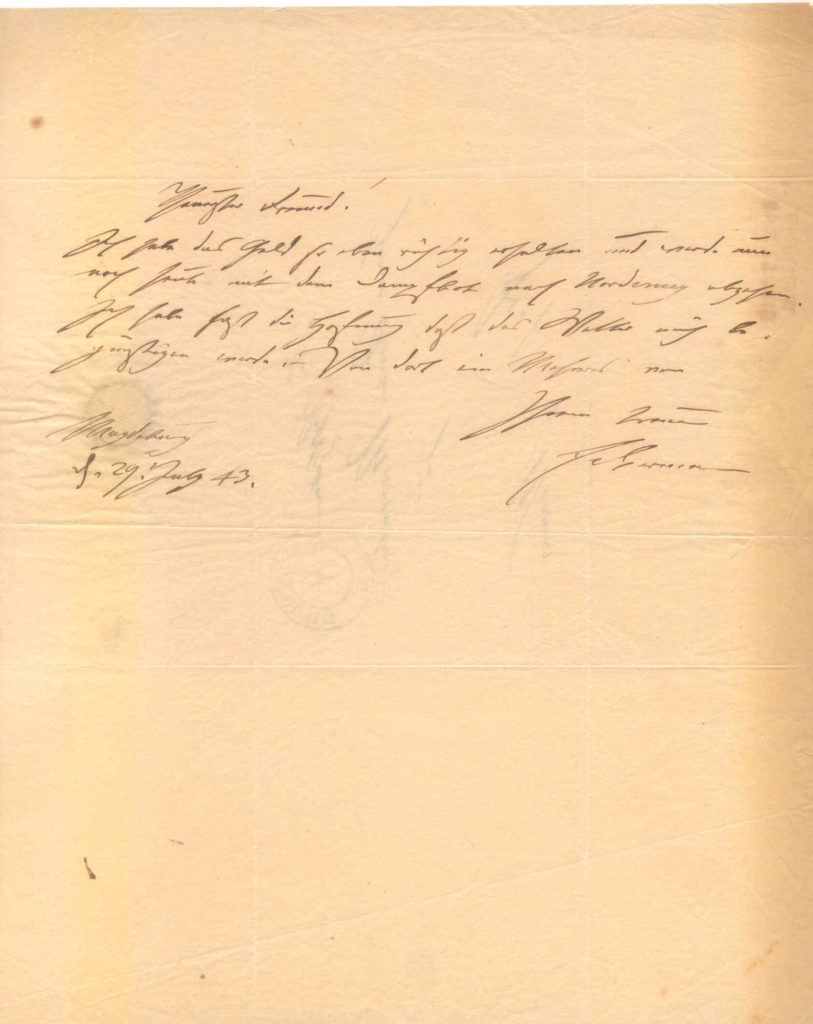 Theuerster Freund!
Ich habe das Geld so eben richtig erhalten und werde nun
noch heute mit dem Dampfbot nach Norderney abgehen.
Ich habe fast die Hoffnung daß das Wetter mich be-
günstigen werde. – Von dort ein Mehreres von
Ihrem treuen
Magdeburg
d. 29. July 43.